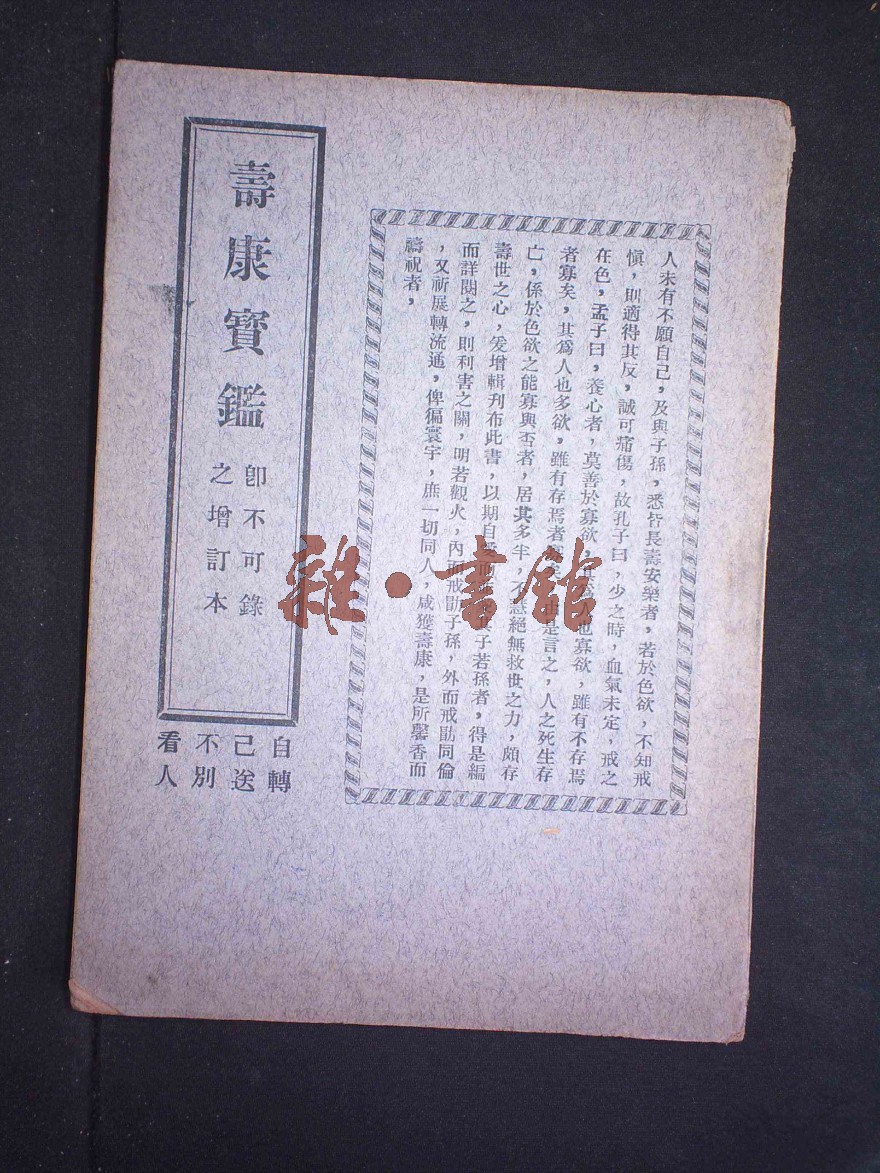 人未有不願自己，及與子孫，悉皆長壽安樂者，若於色欲，不知戒
慎，則適得其反，誠可痛傷，故孔子曰，少之時，血氣未定，戒之
在色，孟子曰，養心者，莫善於寡欲，其爲人也寡欲，雖有不存焉
者寡矣，其爲人也多欲，雖有存焉者寡矣，由是言之，人之死生存
亡，係於色欲之能寡與否者，居其多半，不慧絕無救世之力，頗存
壽世之心，爰增輯刋布此書，以期自愛而子若孫者，得是編
而詳閱之，則利害之關，明若觀火，內而戒勖子孫，外而戒勖同倫
，又祈展轉流通，俾徧寰宇，庶一切同人，咸獲壽康，是所馨香而
禱祝者，
壽康寶鑑
卽不可錄
之增訂本
自己不看
轉送別人
雜·書館